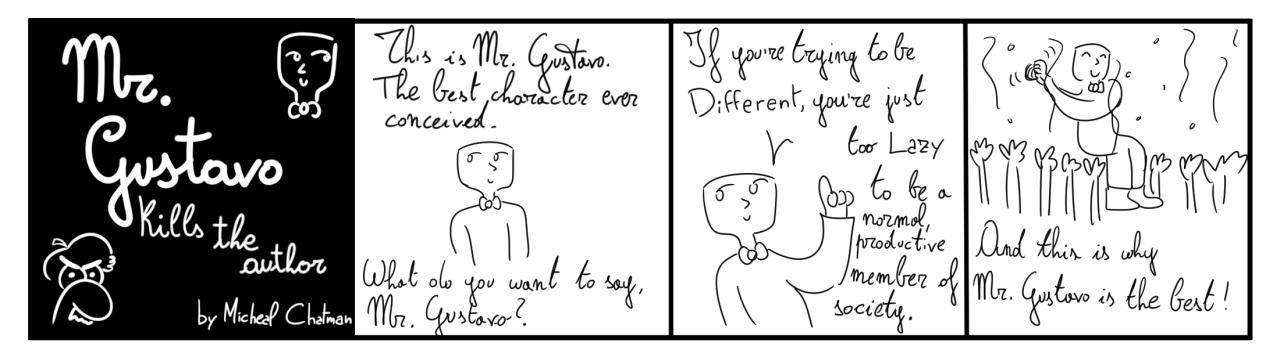 Mr.
Gustavo
Kills the
author
by Micheal Chatman
This is Mr. Gustavo.
The best character ever
conceived.
What do you want to say,
Mr. Gustavo?
If you're trying to be
Different, you're just
too Lazy
to be a
normal,
productive
member of
society.
And this is why
Mr. Gustavo is the best!